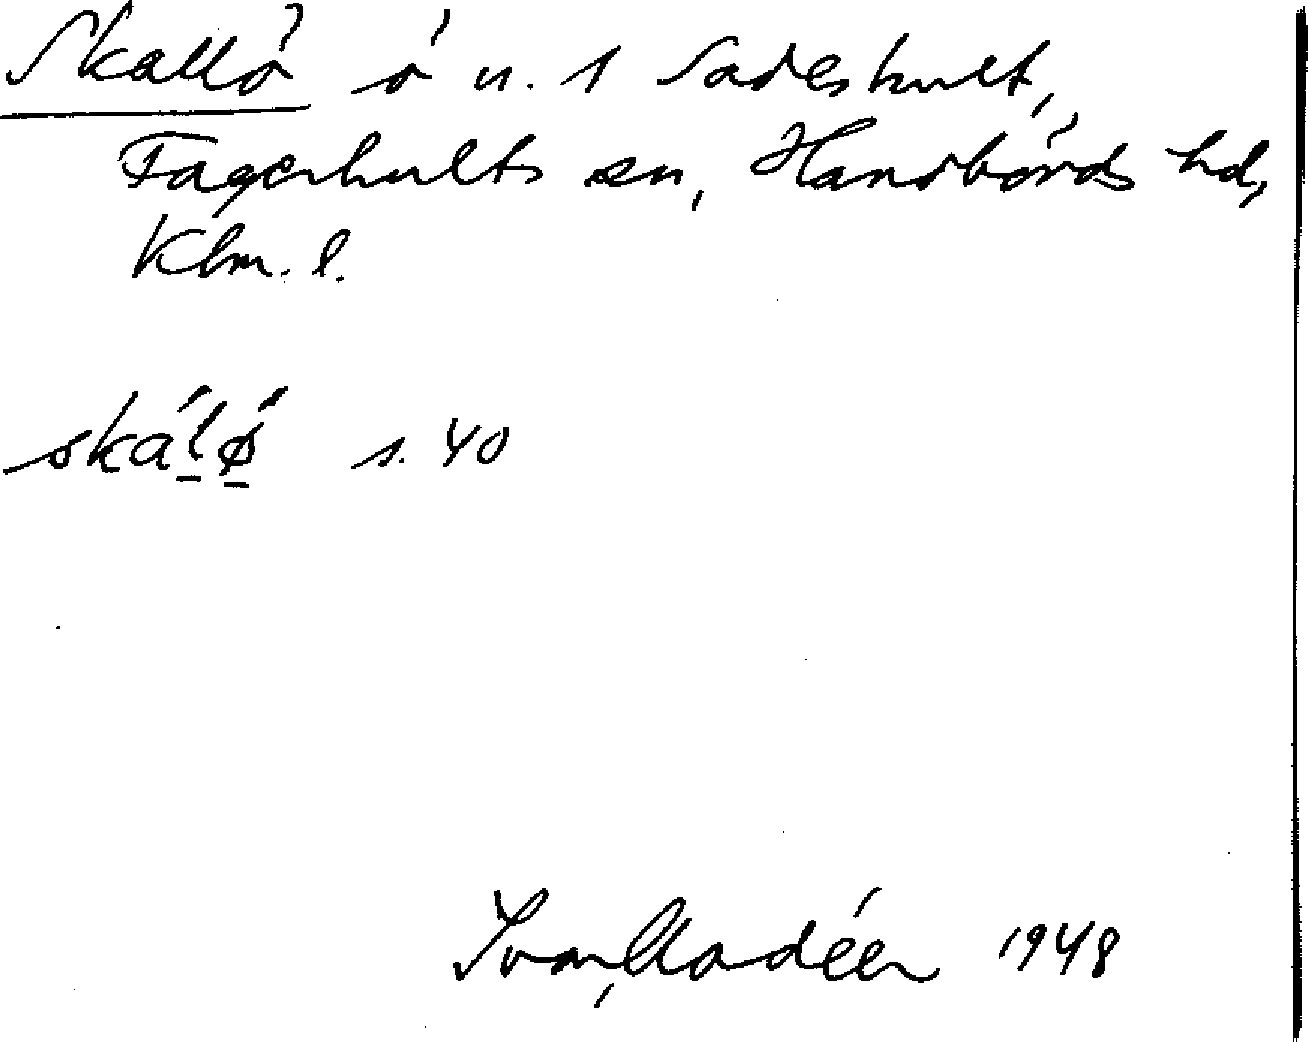 Skallö ö n. 1 Sadeshult,
Fagerhults sn, Handbörds hd,
Klm. l.
skálǿ s. 40
Ivar Modéer 1948